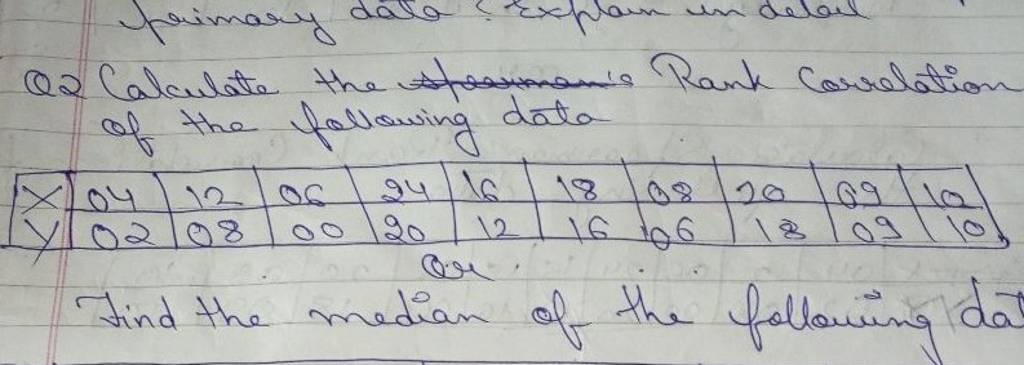 primary data? Explain in detail
Q2 Calculate the spearman's Rank Correlation
of the following data
X 04 12 06 24 16 18 08 20 09 10
Y 02 08 00 20 12 16 06 18 09 10
Or
Find the median of the following dat